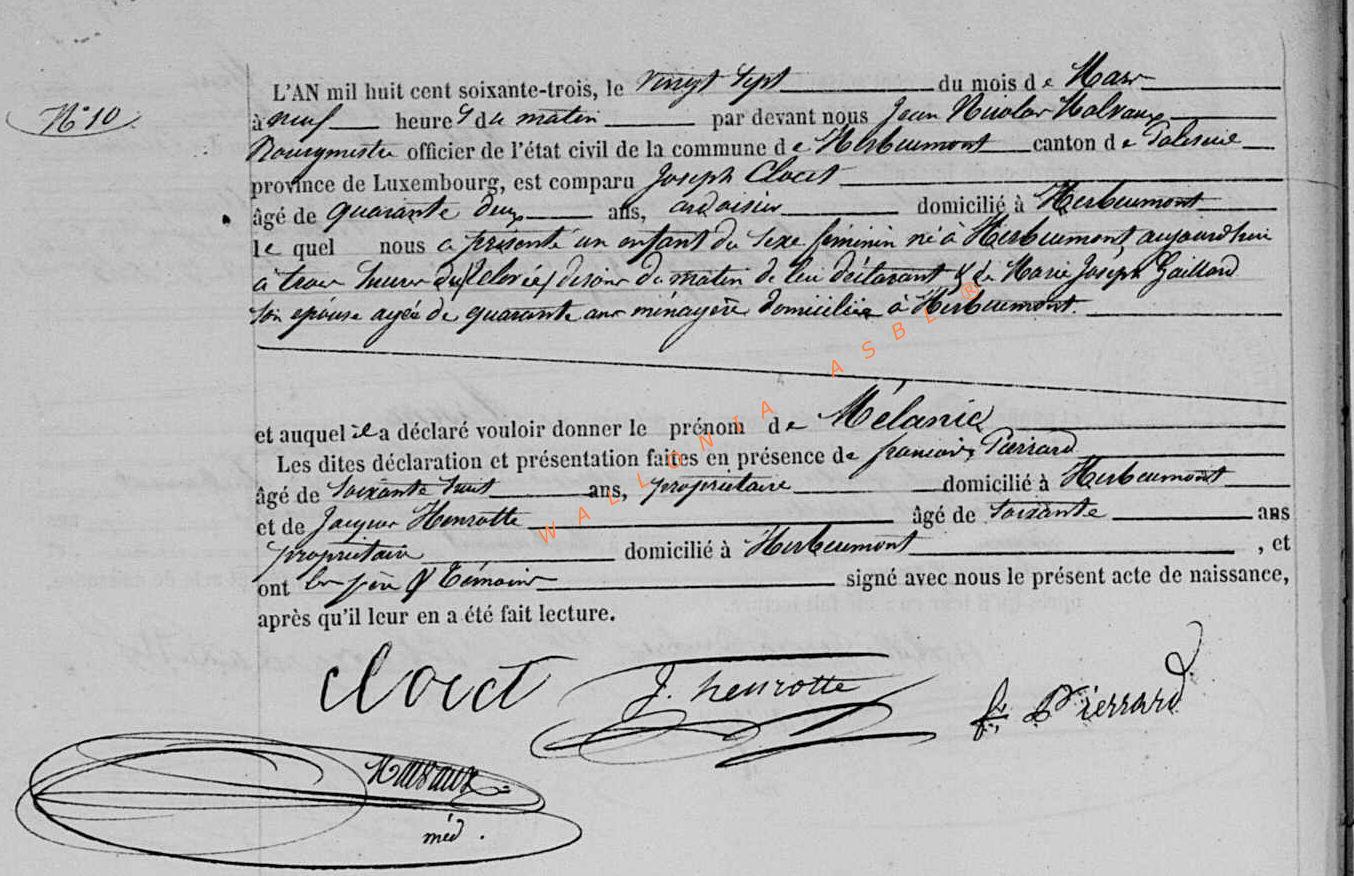 N° 10
L'AN mil huit cent soixante-trois, le vingt sept du mois de Mars
à neuf heures du matin par devant nous Jean Nicolas Malvaux
Bourgmestre officier de l'état civil de la commune de Herbeumont canton de Paliseul
province de Luxembourg, est comparu Joseph Clocet
âgé de quarante deux ans, ardoisier domicilié à Herbeumont
lequel nous a présenté un enfant du sexe féminin né à Herbeumont aujourd'hui
à trois heures du matin de lui déclarant & de Marie Joseph Gaillard
son épouse agée de quarante ans ménagère domiciliée à Herbeumont.
et auquel il a déclaré vouloir donner le prénom de Mélanie
Les dites déclaration et présentation faites en présence de françois Pierrard
âgé de soixante huit ans, propriétaire domicilié à Herbeumont
et de Jacques Henrotte âgé de soixante ans
propriétaire domicilié à Herbeumont, et
ont les père & témoins signé avec nous le présent acte de naissance,
après qu'il leur en a été fait lecture.
Clocet J. henrotte fr. Pierrard
Malvaux
méd.
WALLONIA ASBL ®